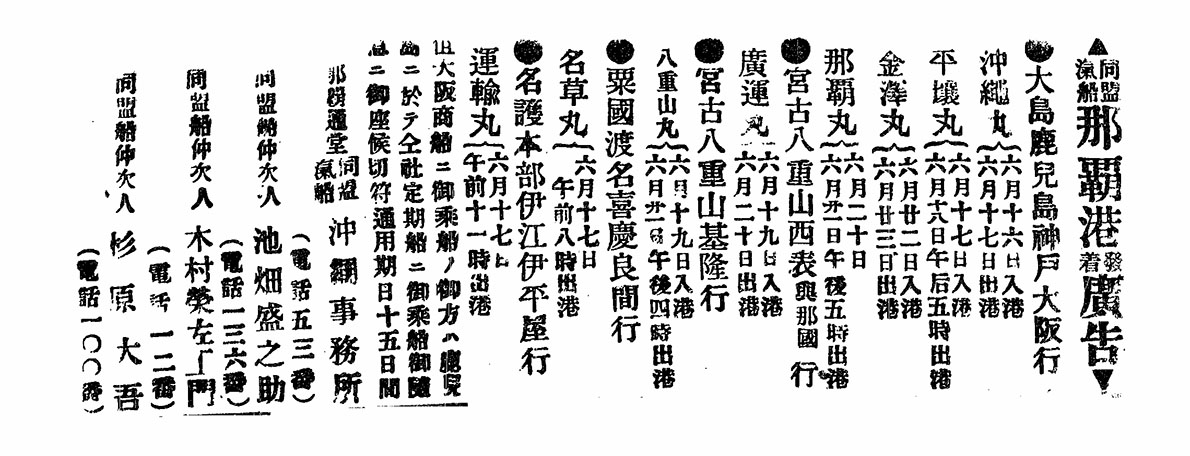 ▲同盟汽船那覇港發着廣告▼
●大島鹿兒島神戸大阪行
沖繩丸 六月十六日入港 六月十七日出港
平壤丸 六月十七日入港 六月十八日午后五時出港
金澤丸 六月廿二日入港 六月廿三日出港
那覇丸 六月二十日 六月廿一日午後五時出港
●宮古八重山西表與那國行
廣運丸 六月十九日入港 六月二十日出港
八重山丸 六月十九日入港 六月廿一日午後四時出港
●宮古八重山基隆行
●粟國渡名喜慶良間行
名草丸 六月十七日 午前八時出港
●名護本部伊江伊平屋行
運輸丸 六月十七日 午前十一時出港
但大阪商船ニ御乘船ノ御方ハ鹿兒
島ニ於テ仝社定期船ニ御乘船御隨
意ニ御座候切符通用期日十五日間
那覇通堂
同盟汽船 沖繩事務所
(電話五三番)
同盟船仲次人 池畑盛之助
(電話一三六番)
同盟船仲次人 木村榮左エ門
(電話一二番)
同盟船仲次人 杉原大吾
(電話一〇〇番)